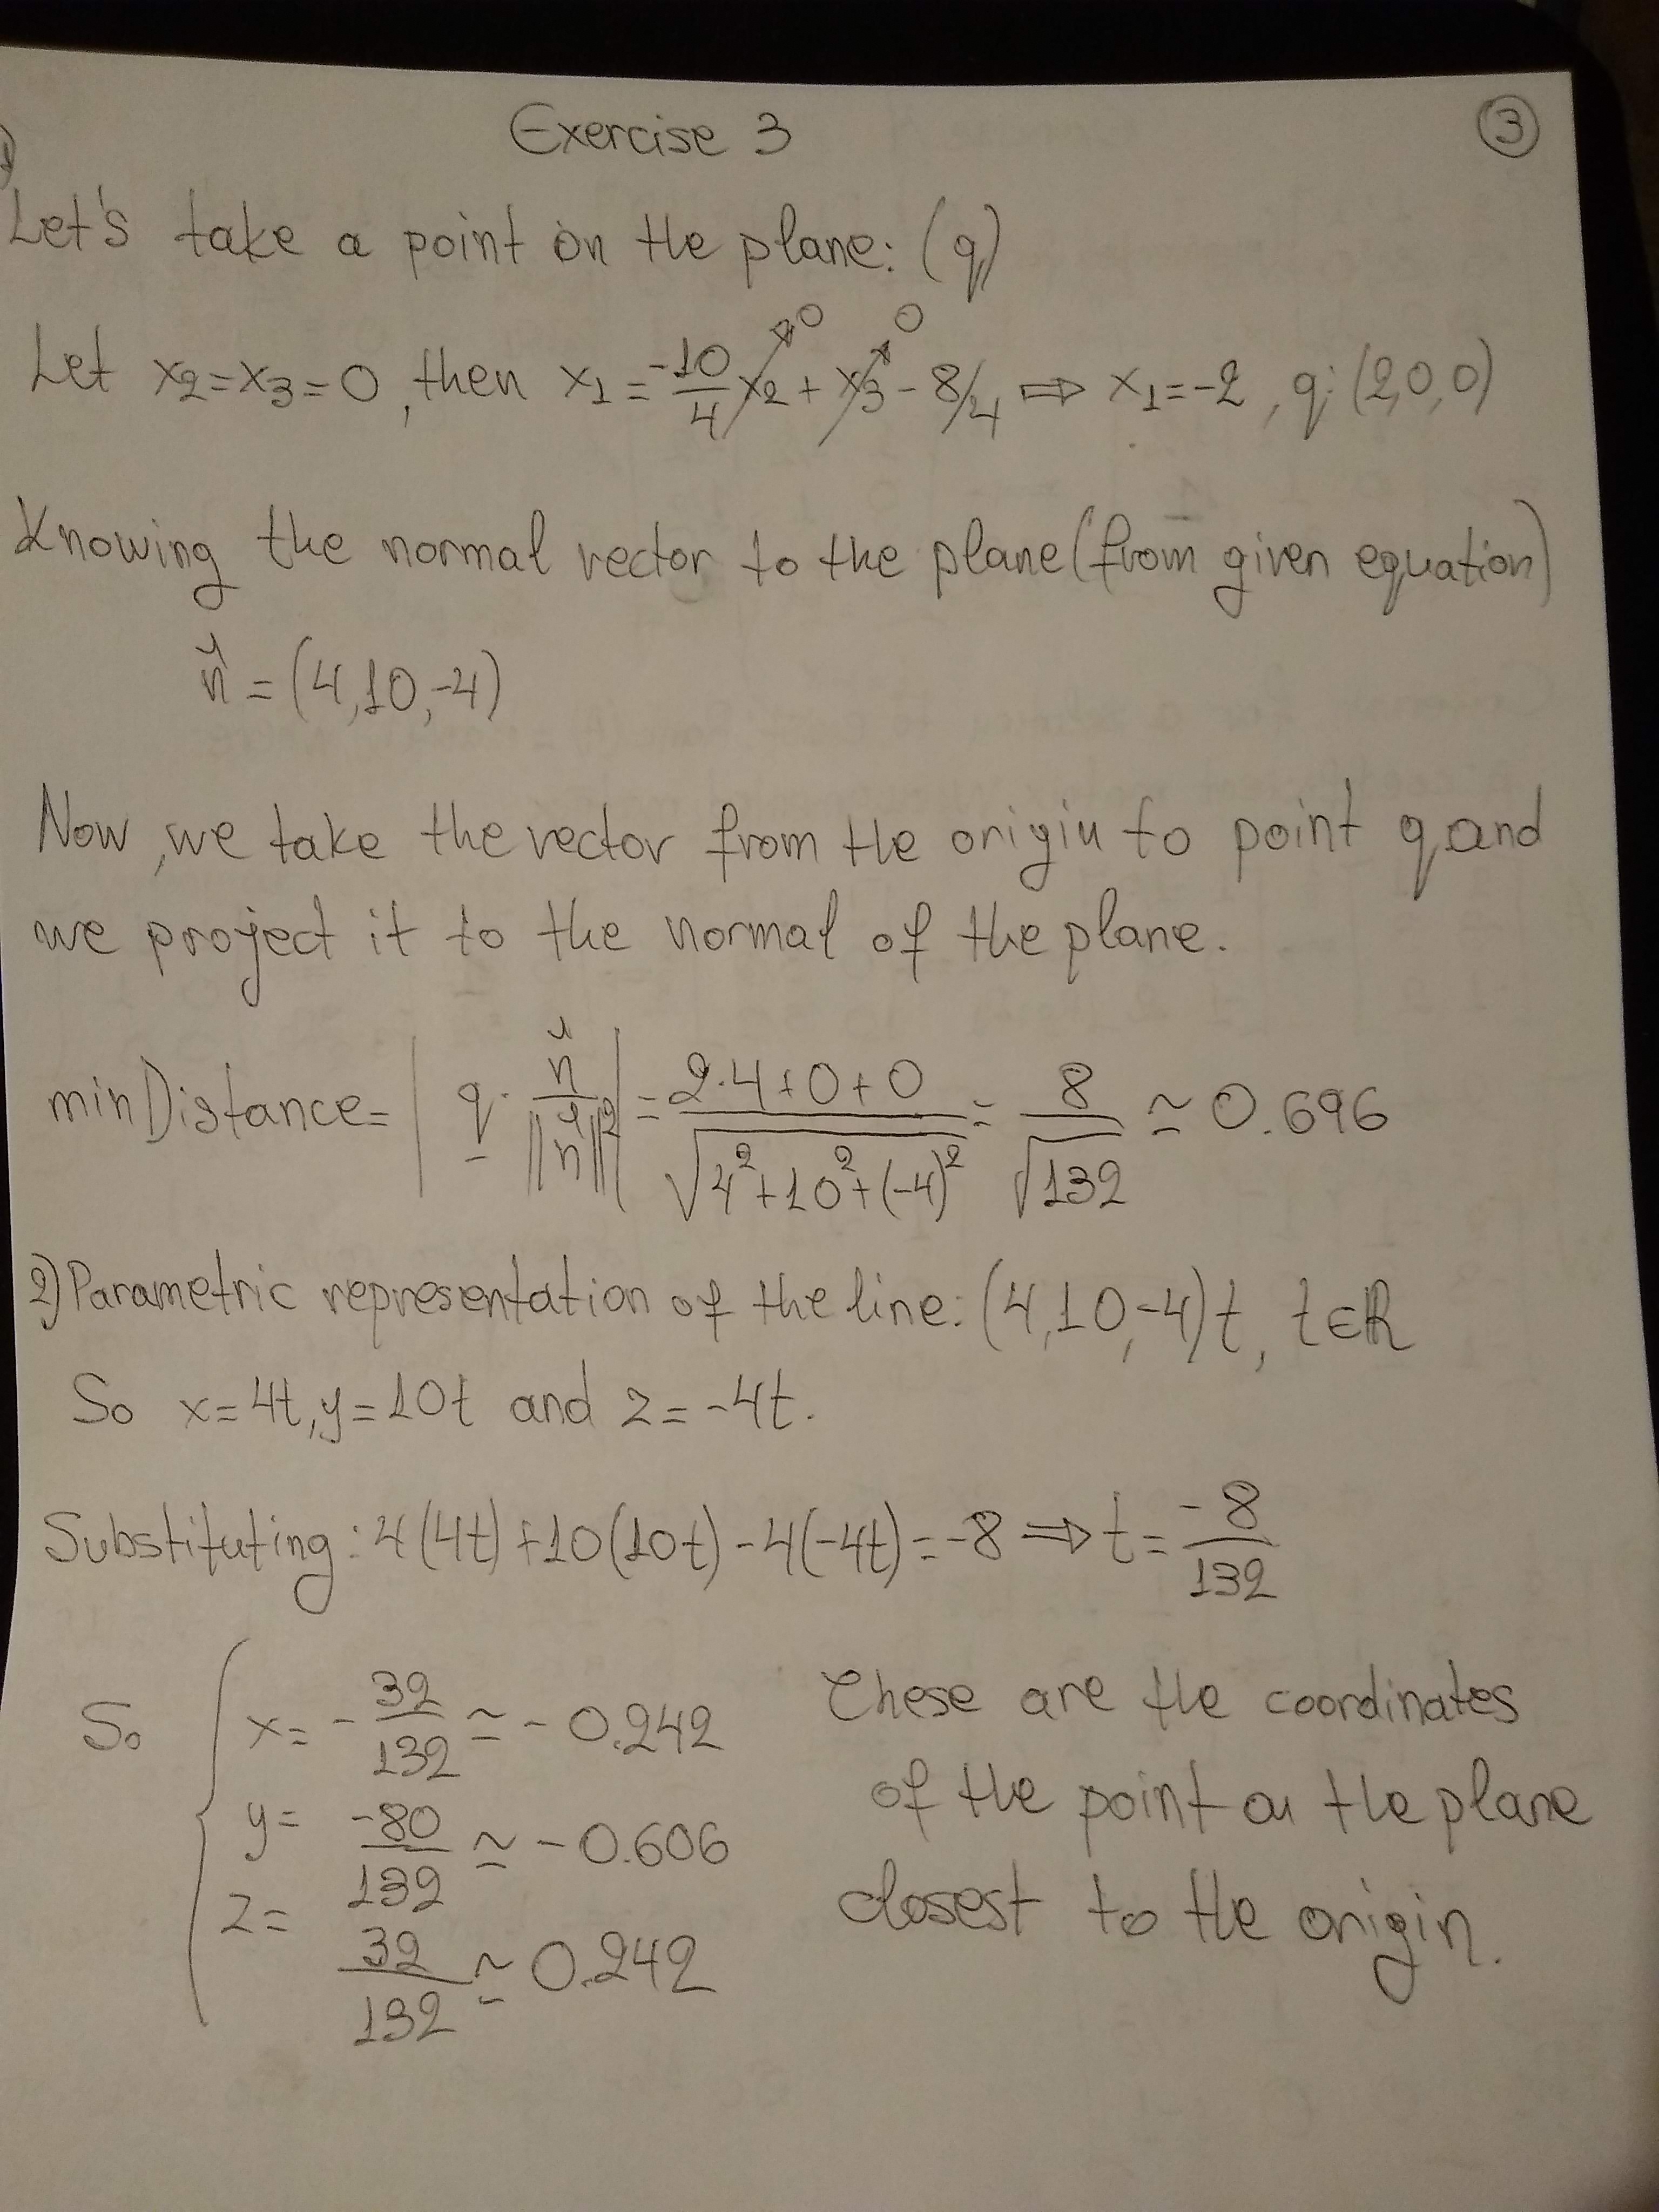 Exercise 3
3
1)
Let's take a point on the plane: (q)
Let x₂=x₃=0, then x₁ = -10/4 x₂ + x₃ - 8/4 ⇒ x₁=-2, q: (2,0,0)
0 0
Knowing the normal vector to the plane (from given equation)
n⃗ = (4,10,-4)
Now, we take the vector from the origin to point q and
we project it to the normal of the plane.
minDistance = | q · n⃗/||n⃗||₂ | = (2·4+0+0)/√(4²+10²+(-4)²) = 8/√132 ≃ 0.696
2) Parametric representation of the line: (4,10,-4)t, t∈R
So x=4t, y=10t and z=-4t.
Substituting: 4(4t)+10(10t)-4(-4t)=-8 ⇒ t = -8/132
So { x = -32/132 ≃ -0.242
y = -80/132 ≃ -0.606
z = 32/132 ≃ 0.242
These are the coordinates
of the point on the plane
closest to the origin.